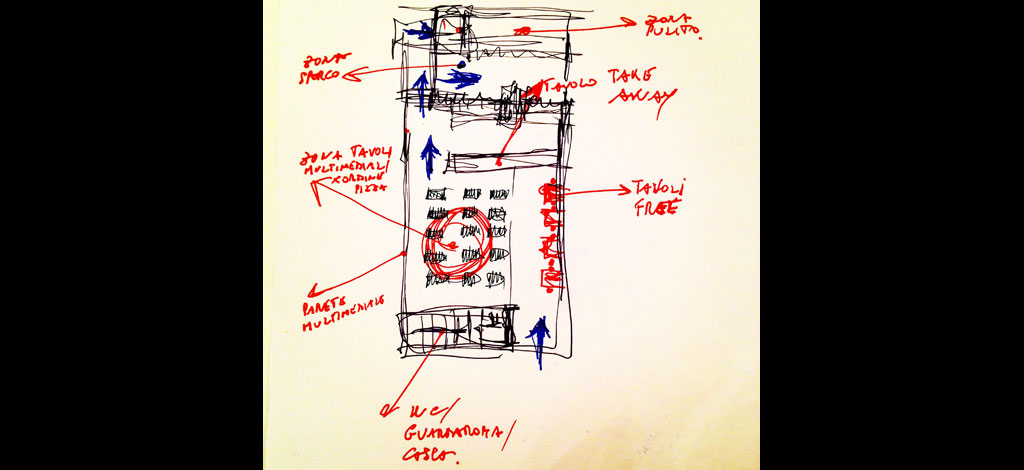 ZONA
PULITO.
ZONA
SPORCO
TAVOLO TAKE
AWAY
ZONA TAVOLI
MULTIMEDIALI/
XORDINE
PIZZA
TAVOLI
FREE
PARETE
MULTIMEDIALE
WC/
GUARDAROBA/